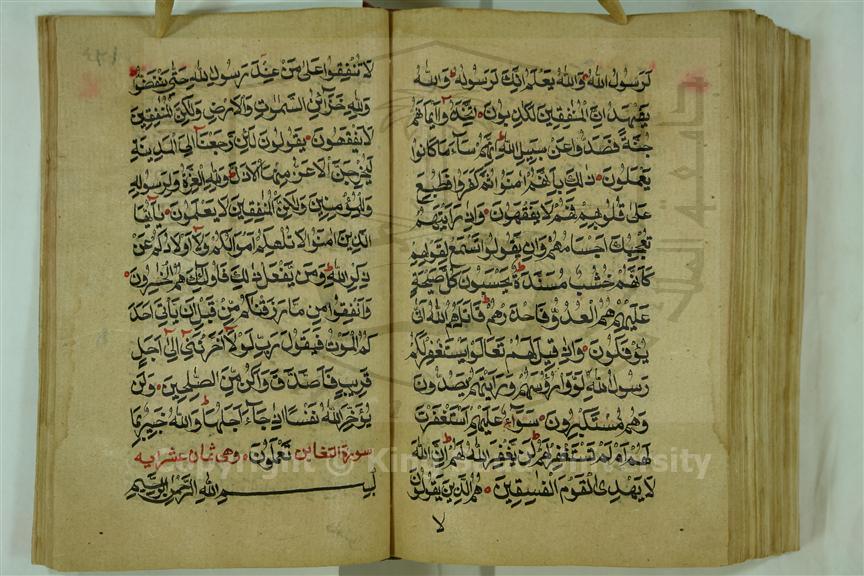 لَرَسُولُ اللهِ وَاللهُ يَعْلَمُ اِنَّكَ لَرَسُولُهُ وَاللهُ
يَشْهَدُ اِنَّ الْمُنٰفِقِينَ لَكٰذِبُونَ اِتَّخَذُوا اَيْمَانَهُمْ
جُنَّةً فَصَدُّوا عَنْ سَبِيلِ اللهِ اِنَّهُمْ سَآءَ مَا كَانُوا
يَعْمَلُونَ ذٰلِكَ بِاَنَّهُمْ اٰمَنُوا ثُمَّ كَفَرُوا فَطُبِعَ
عَلٰى قُلُوبِهِمْ فَهُمْ لَا يَفْقَهُونَ وَاِذَا رَاَيْتَهُمْ
تُعْجِبُكَ اَجْسَامُهُمْ وَاِنْ يَقُولُوا تَسْمَعْ لِقَوْلِهِمْ
كَاَنَّهُمْ خُشُبٌ مُسَنَّدَةٌ يَحْسَبُونَ كُلَّ صَيْحَةٍ
عَلَيْهِمْ هُمُ الْعَدُوُّ فَاحْذَرْهُمْ قَاتَلَهُمُ اللهُ اَنّٰى
يُؤْفَكُونَ وَاِذَا قِيلَ لَهُمْ تَعَالَوْا يَسْتَغْفِرْ لَكُمْ
رَسُولُ اللهِ لَوَّوْا رُؤُسَهُمْ وَرَاَيْتَهُمْ يَصُدُّونَ
وَهُمْ مُسْتَكْبِرُونَ سَوَآءٌ عَلَيْهِمْ اَسْتَغْفَرْتَ
لَهُمْ اَمْ لَمْ تَسْتَغْفِرْ لَهُمْ لَنْ يَغْفِرَ اللهُ لَهُمْ اِنَّ اللهَ
لَا يَهْدِى الْقَوْمَ الْفٰسِقِينَ هُمُ الَّذِينَ يَقُولُونَ
لا
لَا تُنْفِقُوا عَلٰى مَنْ عِنْدَ رَسُولِ اللهِ حَتّٰى يَنْفَضُّوا
وَلِلّٰهِ خَزَآئِنُ السَّمٰوَاتِ وَالْاَرْضِ وَلٰكِنَّ الْمُنٰفِقِينَ
لَا يَفْقَهُونَ يَقُولُونَ لَئِنْ رَجَعْنَا اِلَى الْمَدِينَةِ
لَيُخْرِجَنَّ الْاَعَزُّ مِنْهَا الْاَذَلَّ وَلِلّٰهِ الْعِزَّةُ وَلِرَسُولِهِ
وَلِلْمُؤْمِنِينَ وَلٰكِنَّ الْمُنٰفِقِينَ لَا يَعْلَمُونَ يٰٓاَيُّهَا
الَّذِينَ اٰمَنُوا لَا تُلْهِكُمْ اَمْوَالُكُمْ وَلَآ اَوْلَادُكُمْ عَنْ
ذِكْرِ اللهِ وَمَنْ يَفْعَلْ ذٰلِكَ فَاُولٰٓئِكَ هُمُ الْخٰسِرُونَ
وَاَنْفِقُوا مِنْ مَّا رَزَقْنَاكُمْ مِنْ قَبْلِ اَنْ يَاْتِىَ اَحَدَ
كُمُ الْمَوْتُ فَيَقُولَ رَبِّ لَوْلَآ اَخَّرْتَنِىٓ اِلٰٓى اَجَلٍ
قَرِيبٍ فَاَصَّدَّقَ وَاَكُنْ مِنَ الصّٰلِحِينَ وَلَنْ
يُؤَخِّرَ اللهُ نَفْسًا اِذَا جَآءَ اَجَلُهَا وَاللهُ خَبِيرٌ بِمَا
تَعْمَلُونَ سورة التغابن وهى ثمان عشر اية
بِسْمِ اللهِ الرَّحْمٰنِ الرَّحِيمِ
جامعة الملك
Copyright © King Saud University